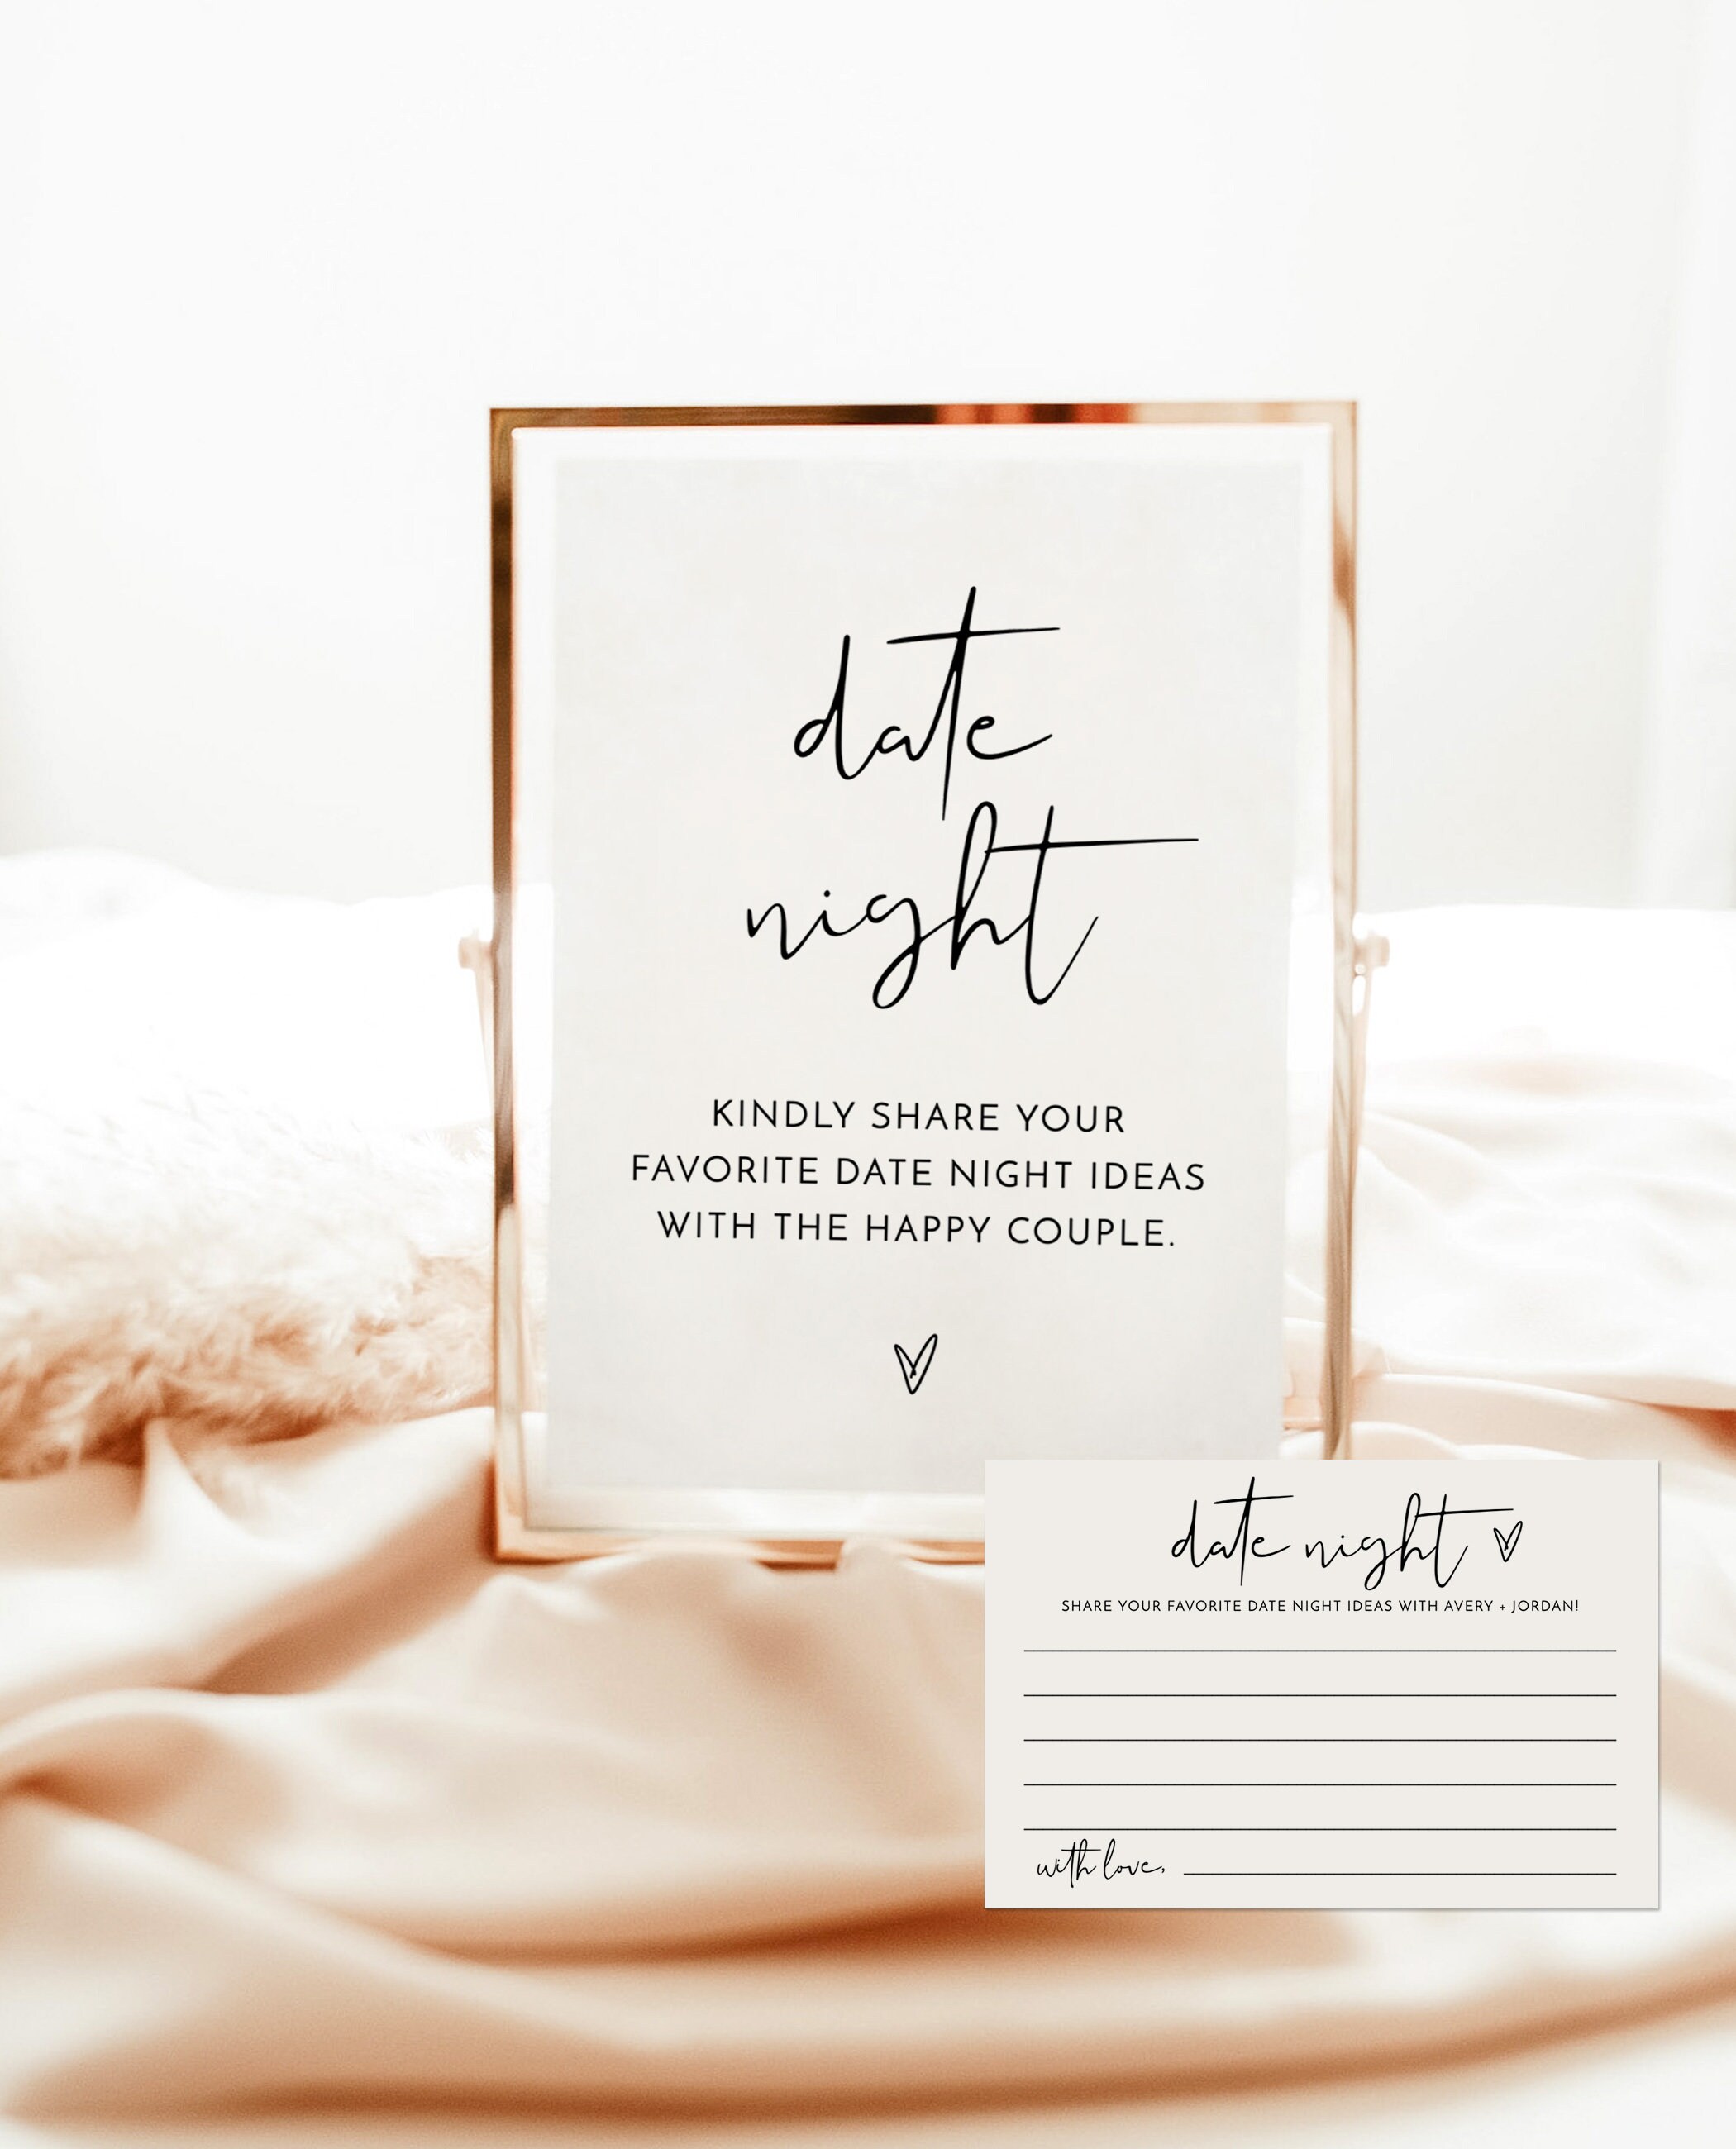 date
night
KINDLY SHARE YOUR
FAVORITE DATE NIGHT IDEAS
WITH THE HAPPY COUPLE.
date night
SHARE YOUR FAVORITE DATE NIGHT IDEAS WITH AVERY + JORDAN!
with love,